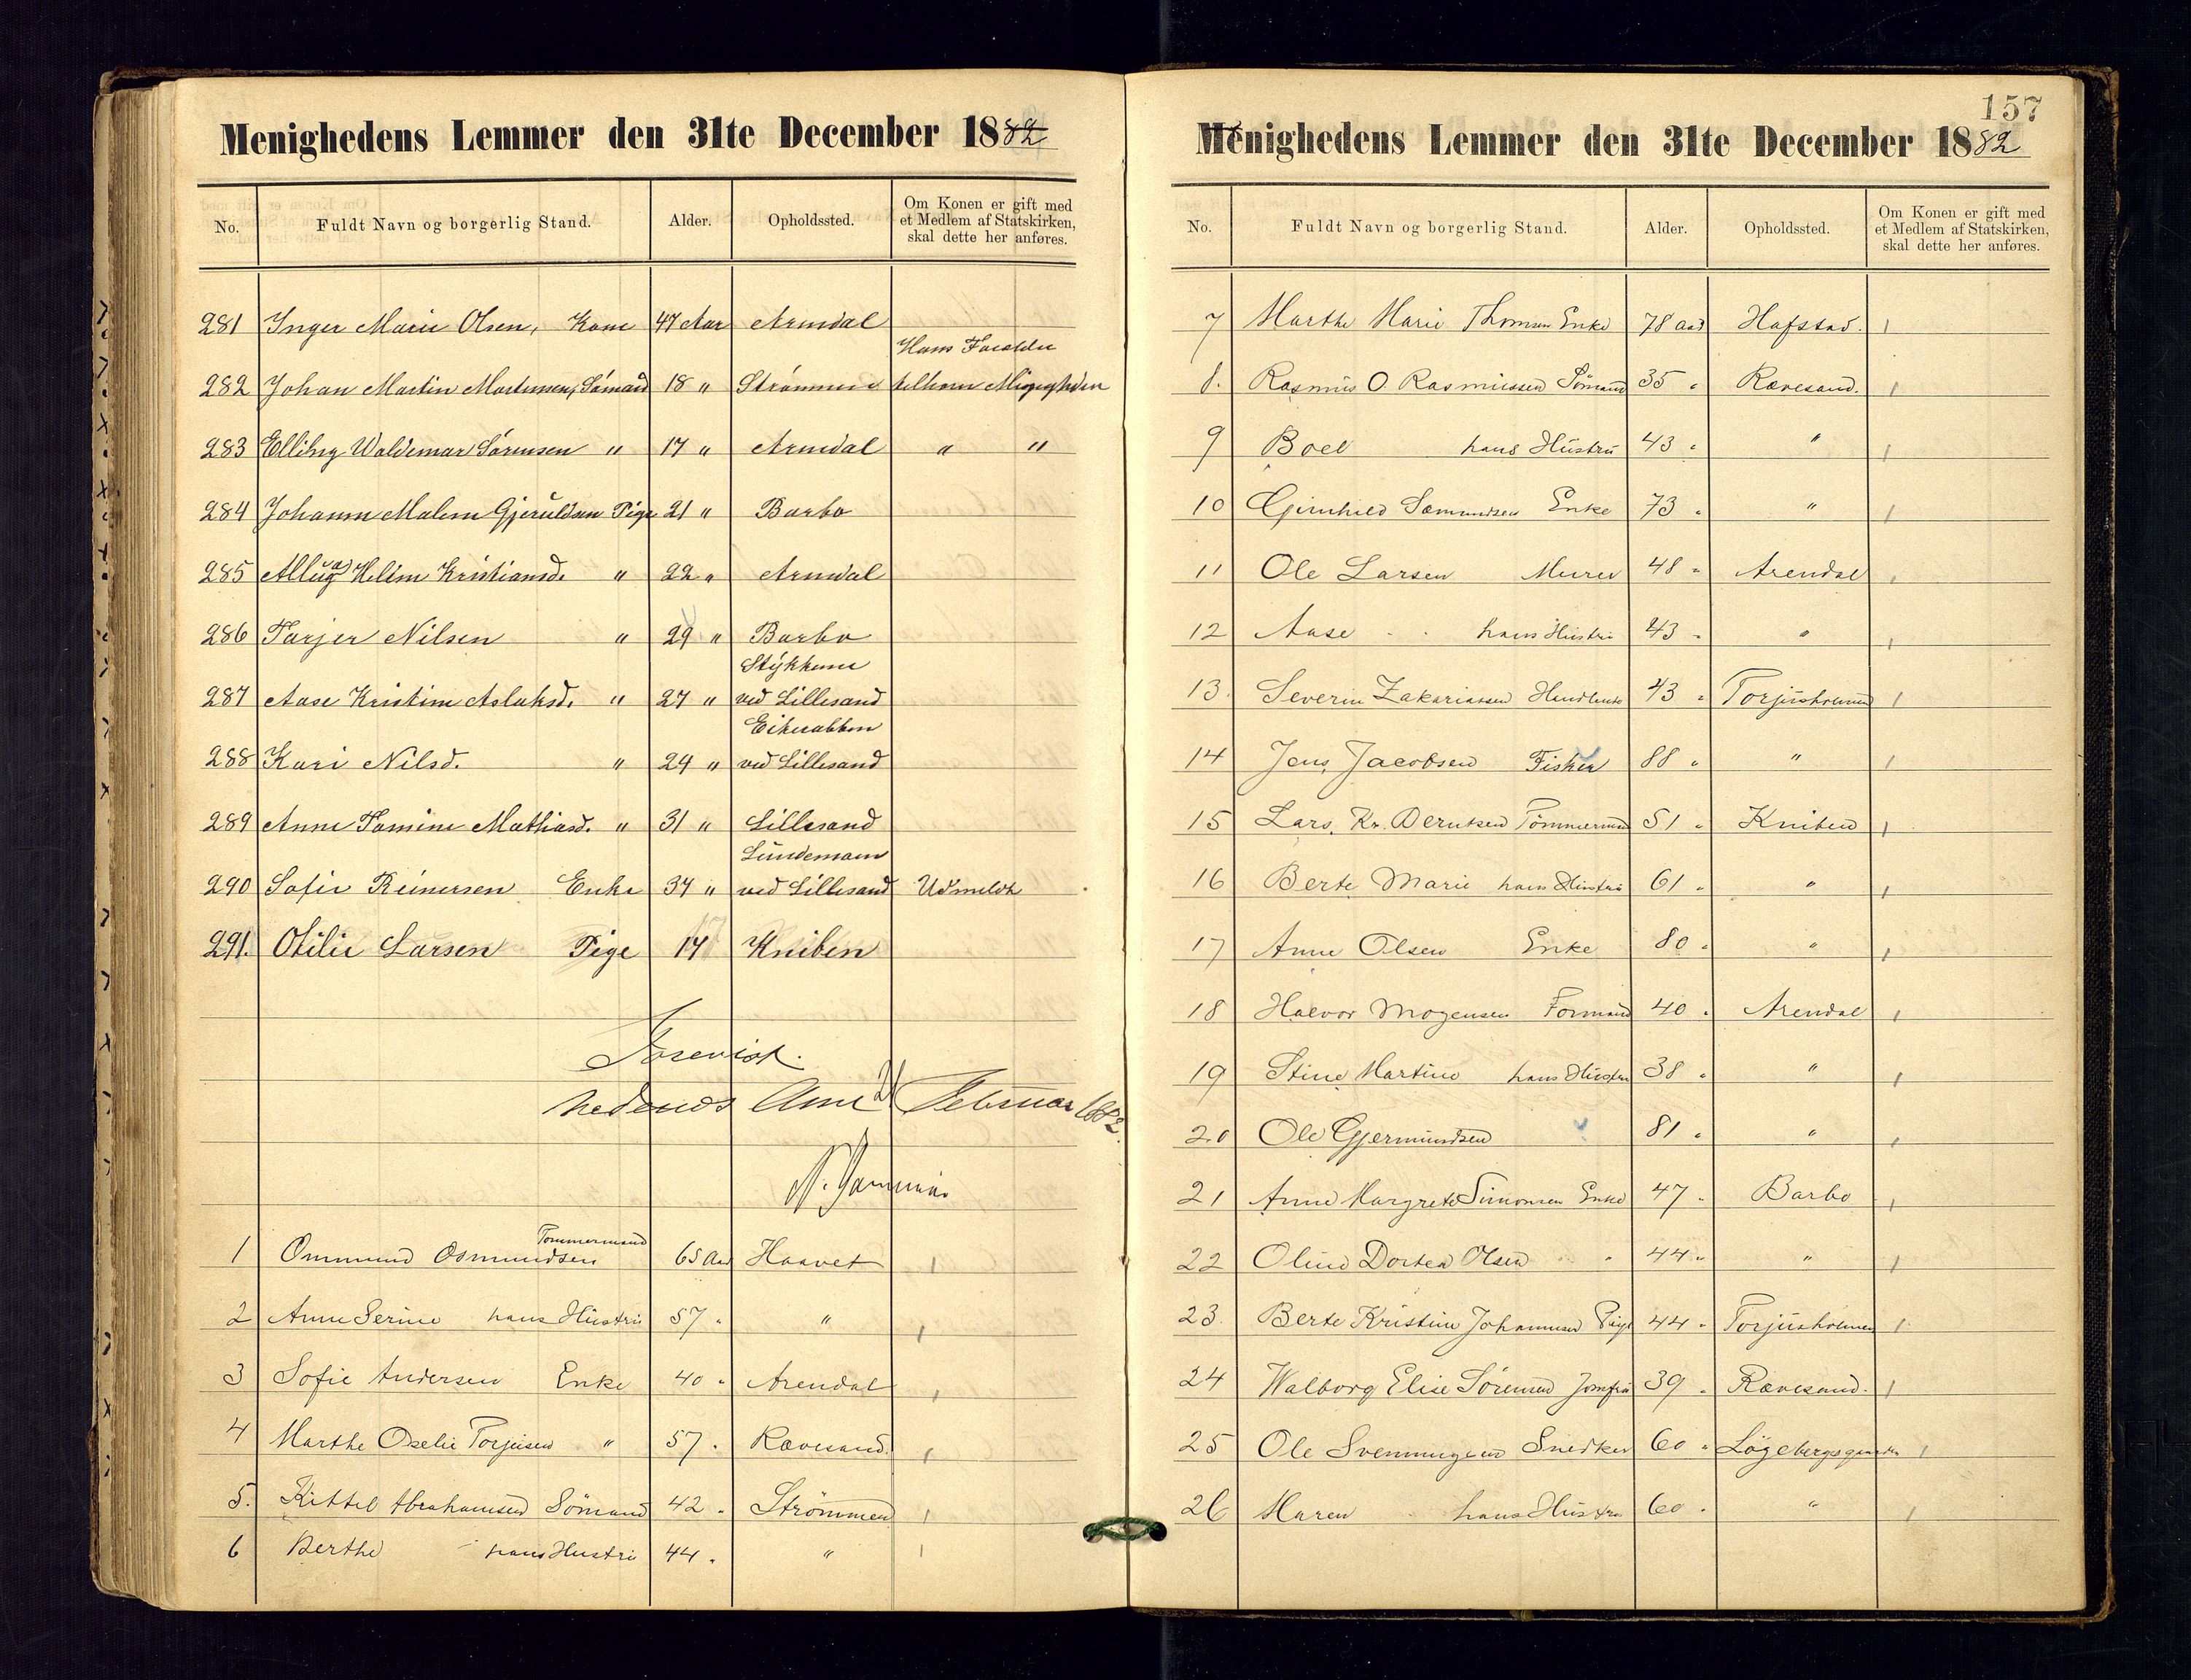 Menighedens Lemmer den 31te December 1882
No. Fuldt Navn og borgerlig Stand. Alder. Opholdssted. Om Konen er gift med et Medlem af Statskirken, skal dette her anføres.
281 Inger Marie Olsen, Kone 47 Aar Arendal
282 Johan Martin Martinsen, Sømand 18 " Strømmen Hans Forældre tilhører Menigheden
283 Waldemar Sørensen " 17 " Arendal " "
284 Johanne Malene Gjeruldsen Pige 21 " Barbo
285 Helene Kristiansd. " 22 " Arendal
286 Tarjer Nilsen " 29 " Barbo
287 Aase Kristine Aslaksd. " 27 " Stykkene ved Lillesand
288 Kari Nilsd. " 24 " Eikerabben ved Lillesand
289 Anne Tomine Mathiasd. " 31 " Lillesand
290 Sofie Reinersen Enke 34 " ved Lillesand Udmeldt
291. Otilie Larsen Pige 17 Kniben
Forevist
Nedenes Amt 21 Februar 1882.
1 Ommund Osmundsen Tømmermand 65 Aar Haavet
2 Anne Serine hans Hustru 57 " "
3 Sofie Andersen Enke 40 " Arendal
4 Marthe Oselie Torjusen " 57 " Rævesand
5. Kittel Abrahamsen Sømand 42 " Strømmen
6 Berthe hans Hustru 44 " "
157
Menighedens Lemmer den 31te December 1882
No. Fuldt Navn og borgerlig Stand. Alder. Opholdssted. Om Konen er gift med et Medlem af Statskirken, skal dette her anføres.
7 Marthe Marie Thomsen Enke 78 Aar Hafstad.
8. Rasmus O. Rasmussen Sømand 35 " Rævesand.
9 Boel hans Hustru 43 " "
10 Gunhild Sæmundsen Enke 73 " "
11 Ole Larsen Murer 48 " Arendal
12 Aase hans Hustru 43 " "
13. Severin Zakariassen 43 " Torjusholmen
14 Jens Jacobsen Fisker 88 " "
15 Lars Kr. Berntsen Tømmermand 51 " Kniben
16 Berte Marie hans Hustru 61 " "
17 Anne Olsen Enke 80 " "
18 Halvor Mogensen Formand 40 " Arendal
19 Stine Martine hans Hustru 38 " "
20 Ole Gjermundsen 81 " "
21 Anne Margrete Simonsen Enke 47 " Barbo
22 Oline Dortea Olsen " 44 " "
23. Berte Kristine Johannesen Pige 44 " Torjusholmen
24 Walborg Elise Sørensen Jomfru 39 " Rævesand.
25 Ole Svenningsen Snedker 60 "
26 Maren hans Hustru 60 " "